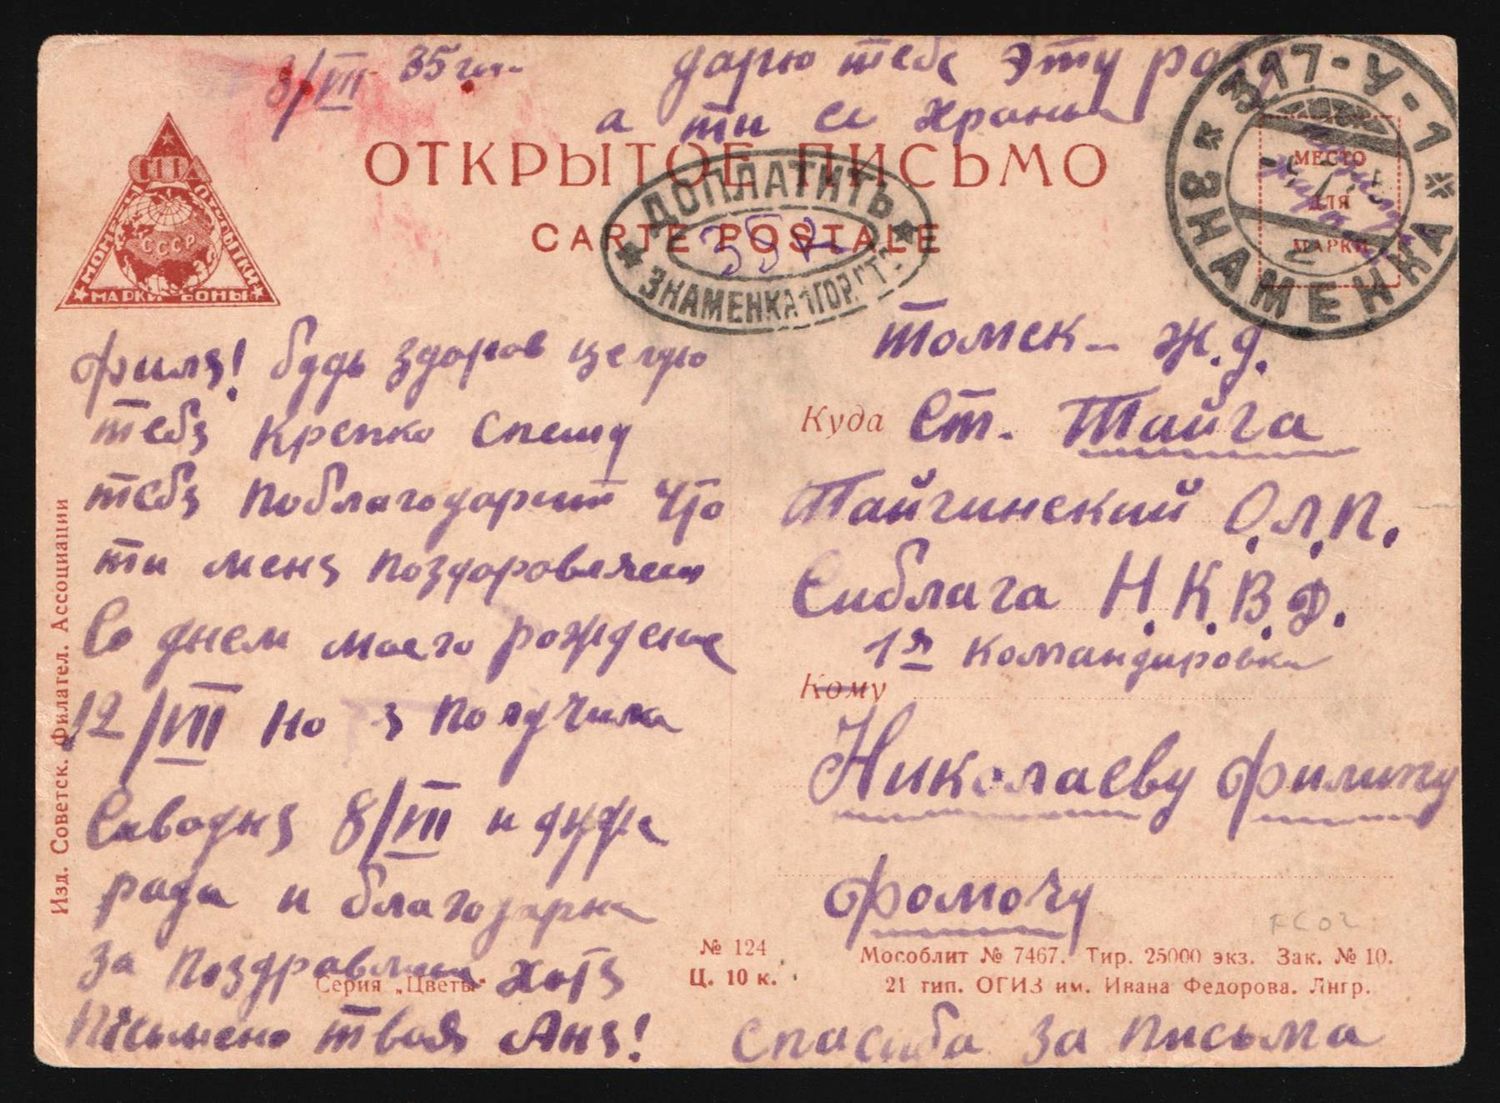 8/VII 35
дарю тебе эту роз
а ти се храни
ОТКРЫТОЕ ПИСЬМО
CARTE POSTALE
СФА
МОНЕТЫ ОТКРЫТКИ
СССР
МАРКИ БОНЫ
ДОПЛАТИТЬ
35 к
ЗНАМЕНКА
317-У-1
ЗНАМЕНКА
МЕСТО
ДЛЯ
МАРКИ
Филя! будь здоров целую
тебя Крепко Спешу
тебя поблагодарит что
ти меня поздоровляеш
Со днем маего рождение
12/VII Но я Получила
Саводня 8/VII и дуже
рада и благодарна
за Поздравлени хотя
Письмено твоя Аня!
Спасиба за письма
Томск - ж.д.
Куда Ст. Тайга
Тайгинский О.Л.П.
Сиблага Н.К.В.Д.
1я командировка
Кому
Николаеву Филипу
Фомочу
Изд. Советск. Филател. Ассоциации
Серия „Цветы"
№ 124
Ц. 10 к.
Мособлит № 7467. Тир. 25000 экз. Зак. № 10.
21 тип. ОГИЗ им. Ивана Федорова. Лнгр.